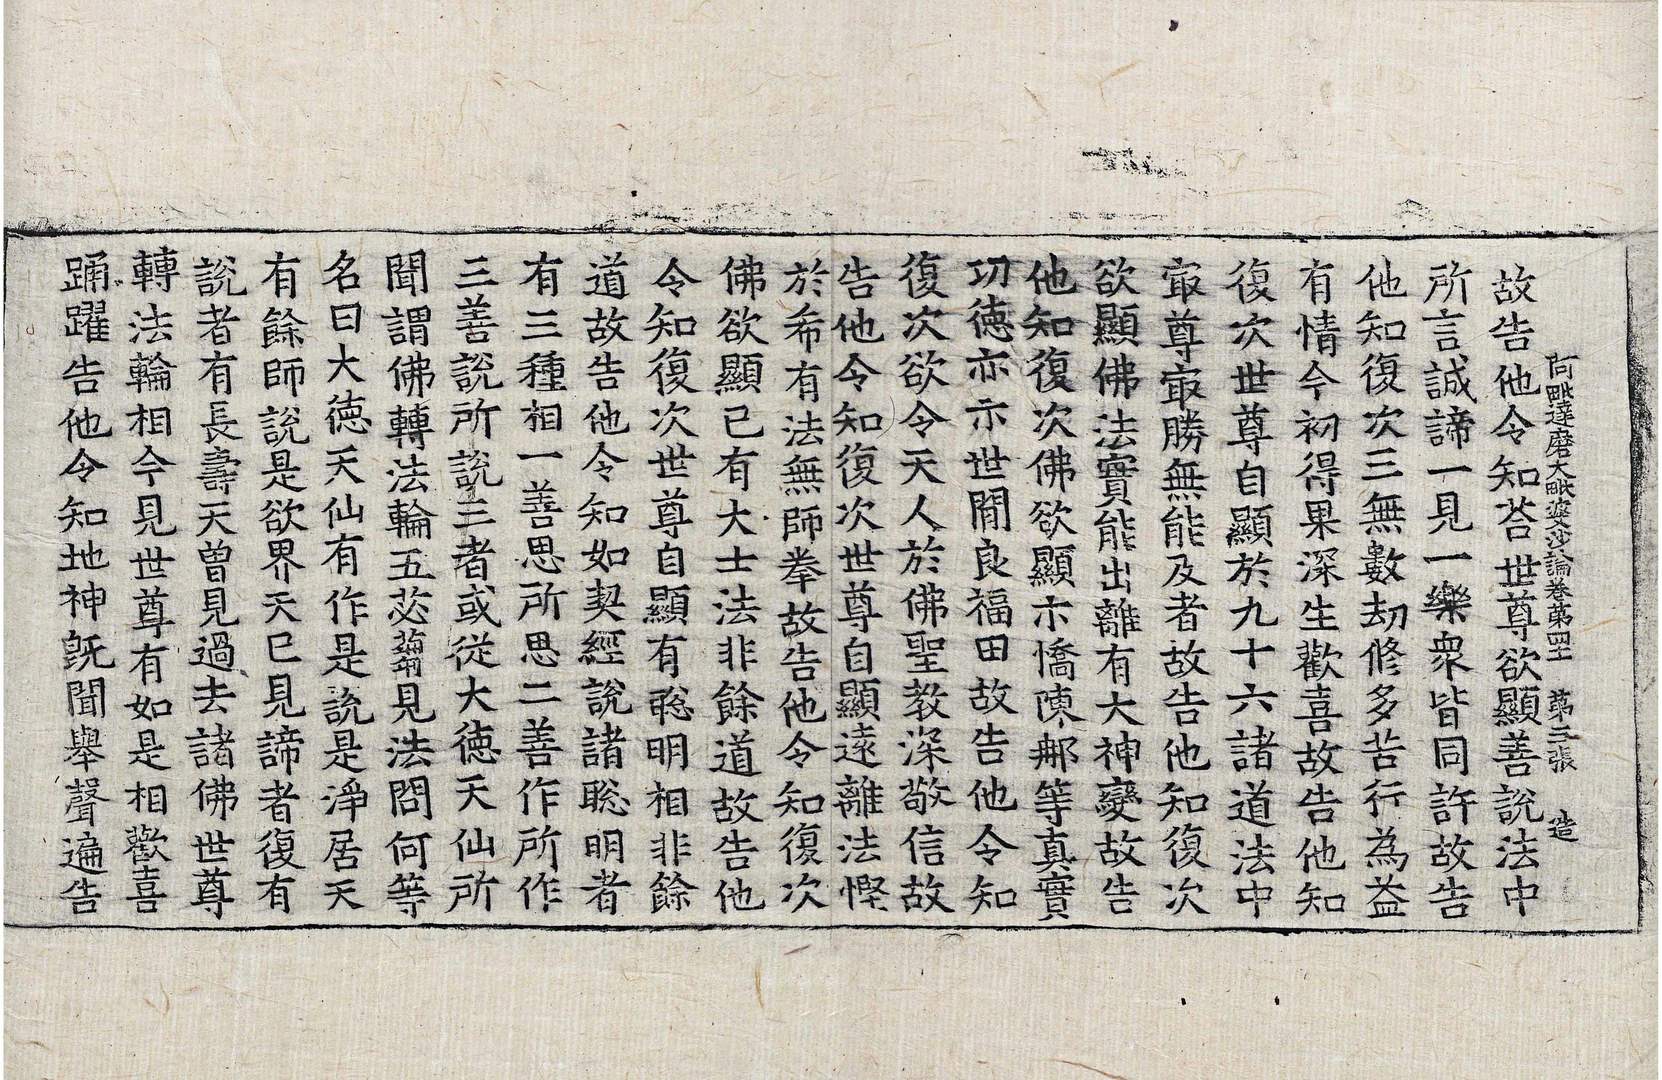 阿毗達磨大毗婆沙論卷第四十一　第三張　造
故告他令知荅世尊欲顯善說法中
所言誠諦一見一樂衆皆同許故告
他知復次三無數劫修多苦行為益
有情今初得果深生歡喜故告他知
復次世尊自顯於九十六諸道法中
㝡尊㝡勝無能及者故告他知復次
欲顯佛法實能出離有大神變故告
他知復次佛欲顯示憍陳那等真實
功德亦示世間良福田故告他令知
復次欲令天人於佛聖教深敬信故
告他令知復次世尊自顯遠離法慳
於希有法無師拳故告他令知復次
佛欲顯已有大士法非餘道故告他
令知復次世尊自顯有聡明相非餘
道故告他令知如契經說諸聡明者
有三種相一善思所思二善作所作
三善說所說三者或從大德天仙所
聞謂佛轉法輪五苾蒭見法問何等
名曰大德天仙有作是說是淨居天
有餘師說是欲界天已見諦者復有
說者有長壽天曾見過去諸佛世尊
轉法輪相今見世尊有如是相歡喜
踊躍告他令知地神既聞舉聲遍告